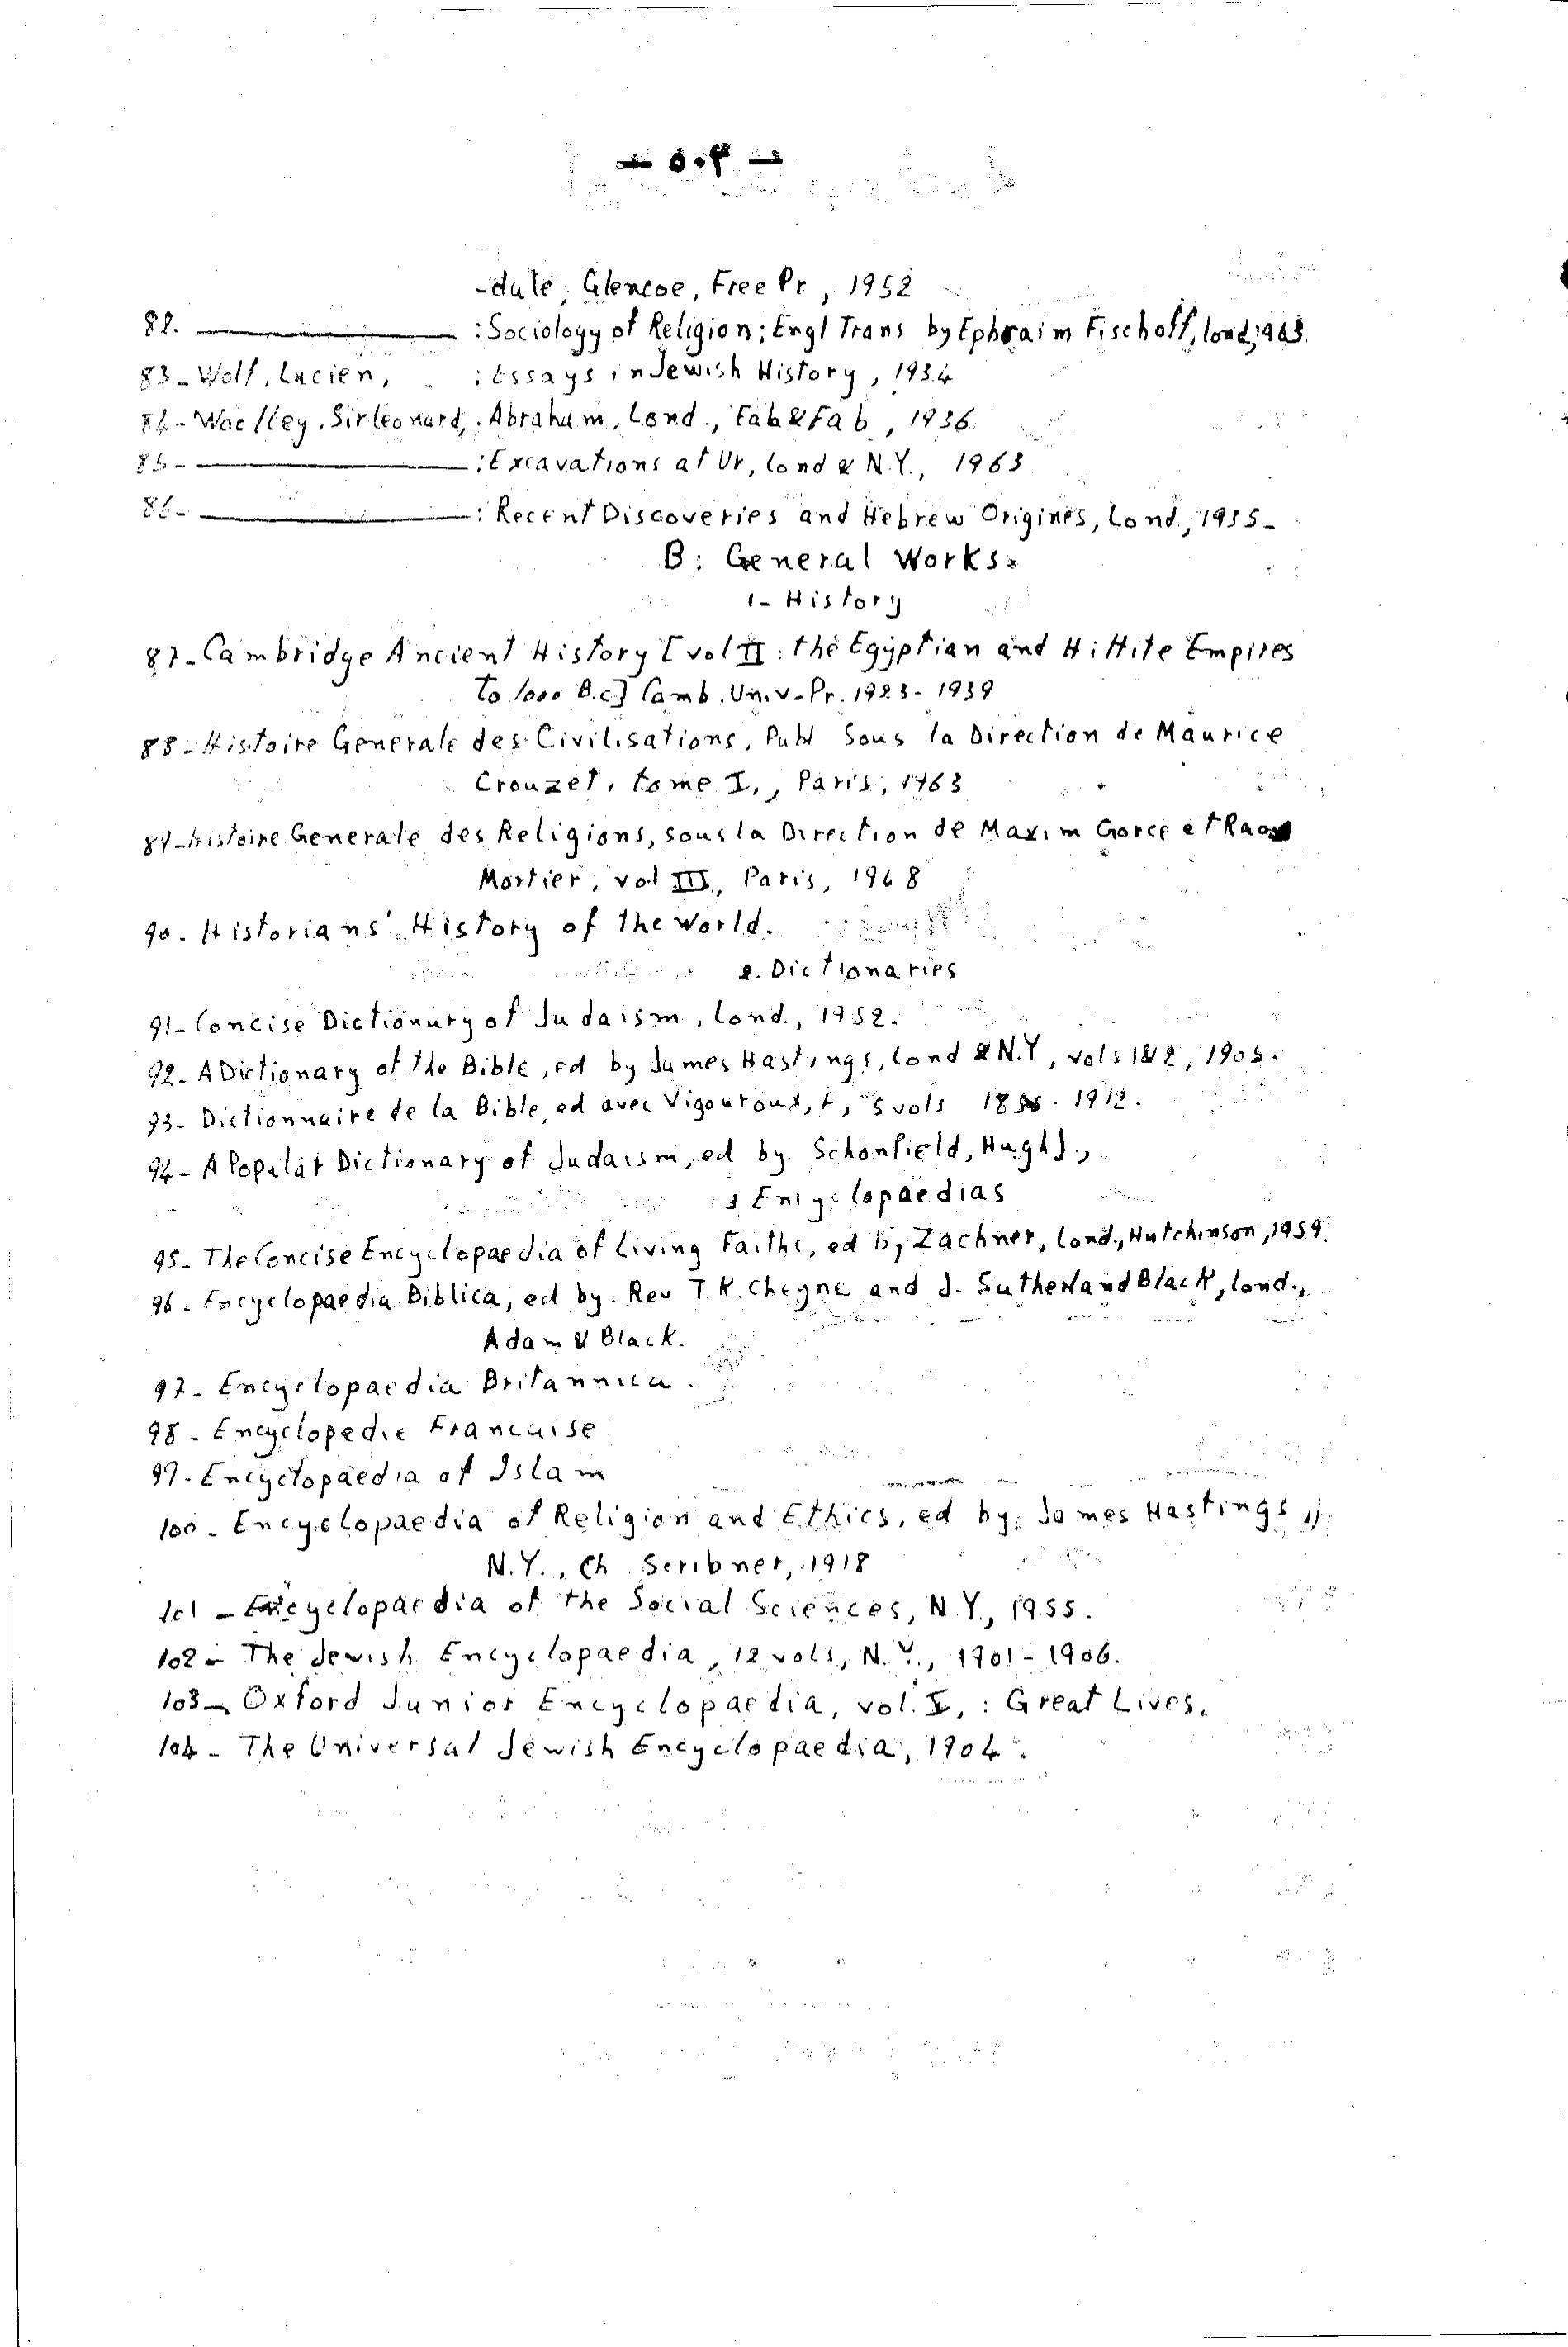 -dale, Glencoe, Free Pr, 1952
82. : Sociology of Religion; Engl Trans by Ephraim Fischoff, Lond, 1963.
83 - Wolf, Lucien, : Essays in Jewish History, 1934
84 - Woolley, Sir Leonard, : Abraham, Lond., Fab & Fab, 1936.
85 - : Excavations at Ur, Lond & N.Y., 1963
86 - : Recent Discoveries and Hebrew Origines, Lond, 1935-
B: General Works:
1- History
87 - Cambridge Ancient History [vol II: the Egyptian and Hittite Empires
To 1000 B.C] Camb. Univ. Pr. 1923-1939
88 - Histoire Generale des Civilisations, Publ Sous la Direction de Maurice
Crouzet, tome I., Paris, 1963
89 - Histoire Generale des Religions, sous la Direction de Maxim Gorce et
Mortier, vol III, Paris, 1968
90. Historians' History of the World.
2. Dictionaries
91 - Concise Dictionary of Judaism, Lond., 1952.
92 - A Dictionary of the Bible, ed by James Hastings, Lond & N.Y, vols 1&2, 1905.
93 - Dictionnaire de la Bible, ed avec Vigouroux, F, 5 vols 1912.
94 - A Popular Dictionary of Judaism, ed by Schonfield, Hugh J.,
3 Encyclopaedias
95 - The Concise Encyclopaedia of Living Faiths, ed by Zachner, Lond., Hutchinson, 1959.
96 - Encyclopaedia Biblica, ed by Rev T.K. Cheyne and J. Sutherland Black, Lond.,
Adam & Black.
97 - Encyclopaedia Britannica.
98 - Encyclopedie Francaise
99 - Encyclopaedia of Islam
100 - Encyclopaedia of Religion and Ethics, ed by: James Hastings,
N.Y., Ch Scribner, 1918
101 - Encyclopaedia of the Social Sciences, N.Y., 1955.
102 - The Jewish Encyclopaedia, 12 vols, N.Y., 1901-1906.
103 - Oxford Junior Encyclopaedia, vol. I, : Great Lives.
104 - The Universal Jewish Encyclopaedia, 1904.